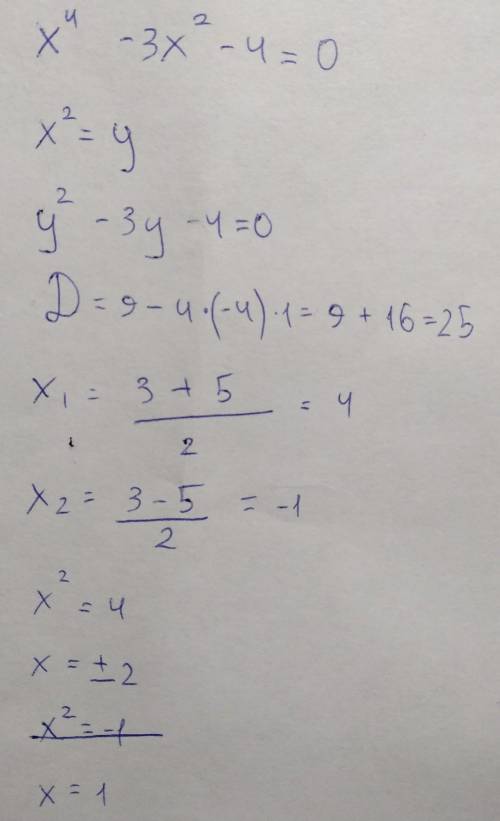 x⁴ - 3x² - 4 = 0
x² = y
y² - 3y - 4 = 0
D = 9 - 4·(-4)·1 = 9 + 16 = 25
x₁ = (3 + 5)/2 = 4
x₂ = (3 - 5)/2 = -1
x² = 4
x = ±2
x² = -1
x = 1